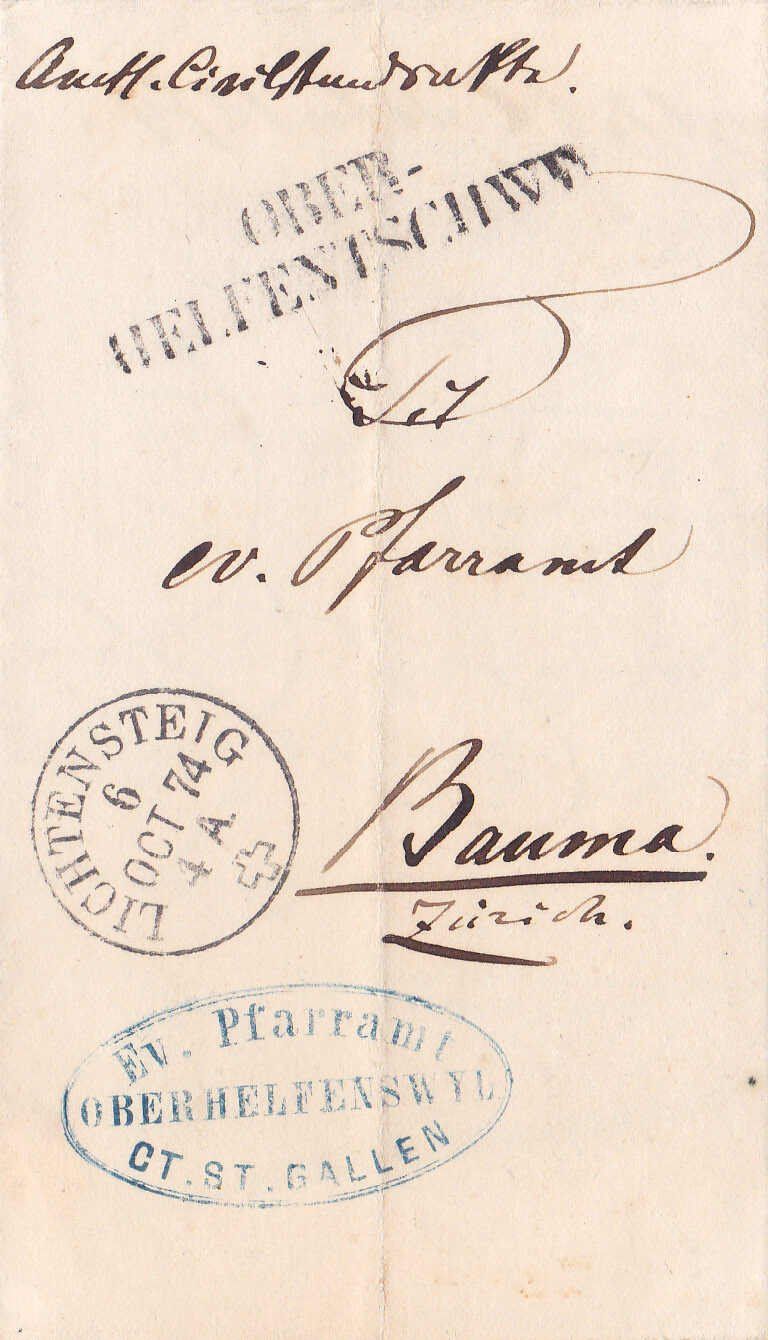 Amtl. Civilstandsakte.
OBER-
HELFENTSCHWE
Tit
ev. Pfarramt
Bauma.
Zürich.
LICHTENSTEIG
6
OCT 74
4 A
Ev. Pfarramt
OBERHELFENSWYL
CT. ST. GALLEN